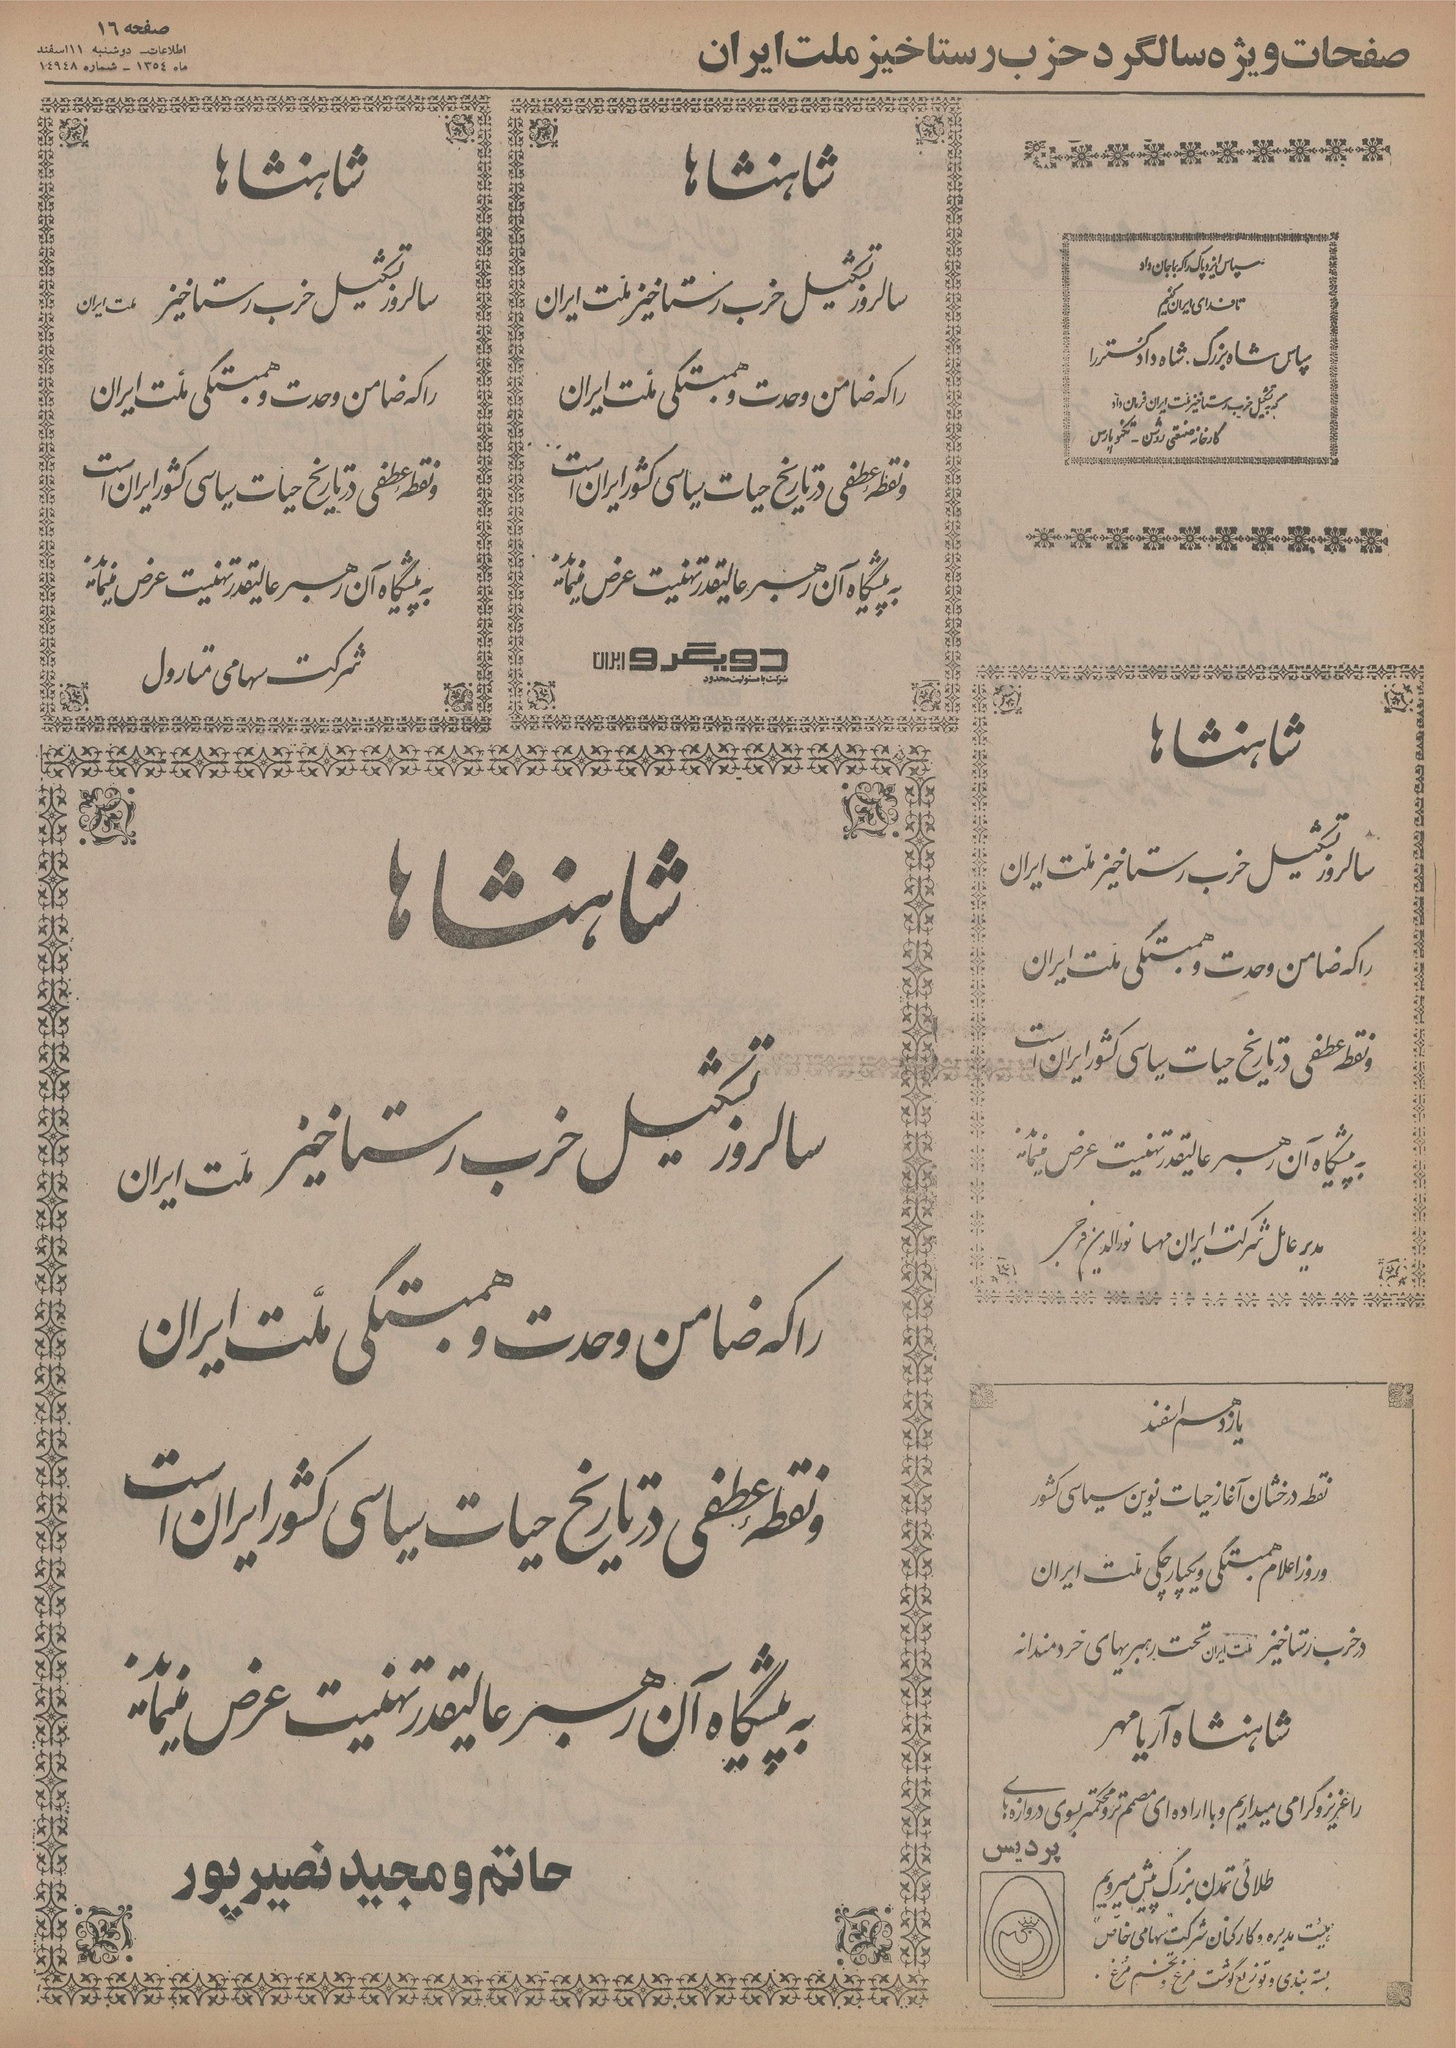 صفحات ویژه سالگرد حزب رستاخیز ملت ایران
صفحه ۱۶
اطلاعات - دوشنبه ۱۱ اسفند
ماه ۱۳۵۴ - شماره ۱۴۹۴۸
سپاس ایزد پاک را که با جان داد
تا فدای ایران کنیم
سپاس شاه بزرگ. شاه دادگستر را
که به تشکیل حزب رستاخیز ملت ایران فرمان داد
کارخانه صنعتی روشن - تکنو پارس
شاهنشاها
سالروز تشکیل حزب رستاخیز ملت ایران
را که ضامن وحدت و همبستگی ملت ایران
و نقطه عطفی در تاریخ حیات سیاسی کشور ایران است
به پیشگاه آن رهبر عالیقدر تهنیت عرض مینماید
دویگرو ایران
شرکت با مسئولیت محدود
شاهنشاها
سالروز تشکیل حزب رستاخیز ملت ایران
را که ضامن وحدت و همبستگی ملت ایران
و نقطه عطفی در تاریخ حیات سیاسی کشور ایران است
به پیشگاه آن رهبر عالیقدر تهنیت عرض مینماید
شرکت سهامی تارول
شاهنشاها
سالروز تشکیل حزب رستاخیز ملت ایران
را که ضامن وحدت و همبستگی ملت ایران
و نقطه عطفی در تاریخ حیات سیاسی کشور ایران است
به پیشگاه آن رهبر عالیقدر تهنیت عرض مینماید
مدیر عامل شرکت ایران مهسا نورالدین
شاهنشاها
سالروز تشکیل حزب رستاخیز ملت ایران
را که ضامن وحدت و همبستگی ملّت ایران
و نقطه عطفی در تاریخ حیات سیاسی کشور ایران است
به پیشگاه آن رهبر عالیقدر تهنیت عرض مینمایند
حاتم و مجید نصیرپور
یازدهم اسفند
نقطه درخشان آغاز حیات نوین سیاسی کشور
و روز اعلام همبستگی و یکپارچگی ملت ایران
در حزب رستاخیز ملت ایران تحت رهبریهای خردمندانه
شاهنشاه آریامهر
را عزیز و گرامی میداریم و با اراده ای مصمم تر و محکمتر بسوی دروازه های
طلائی تمدن بزرگ پیش میرویم
پردیس
هیئت مدیره و کارکنان شرکت "سهامی خاص"
بسته بندی و توزیع گوشت مرغ و تخم مرغ.